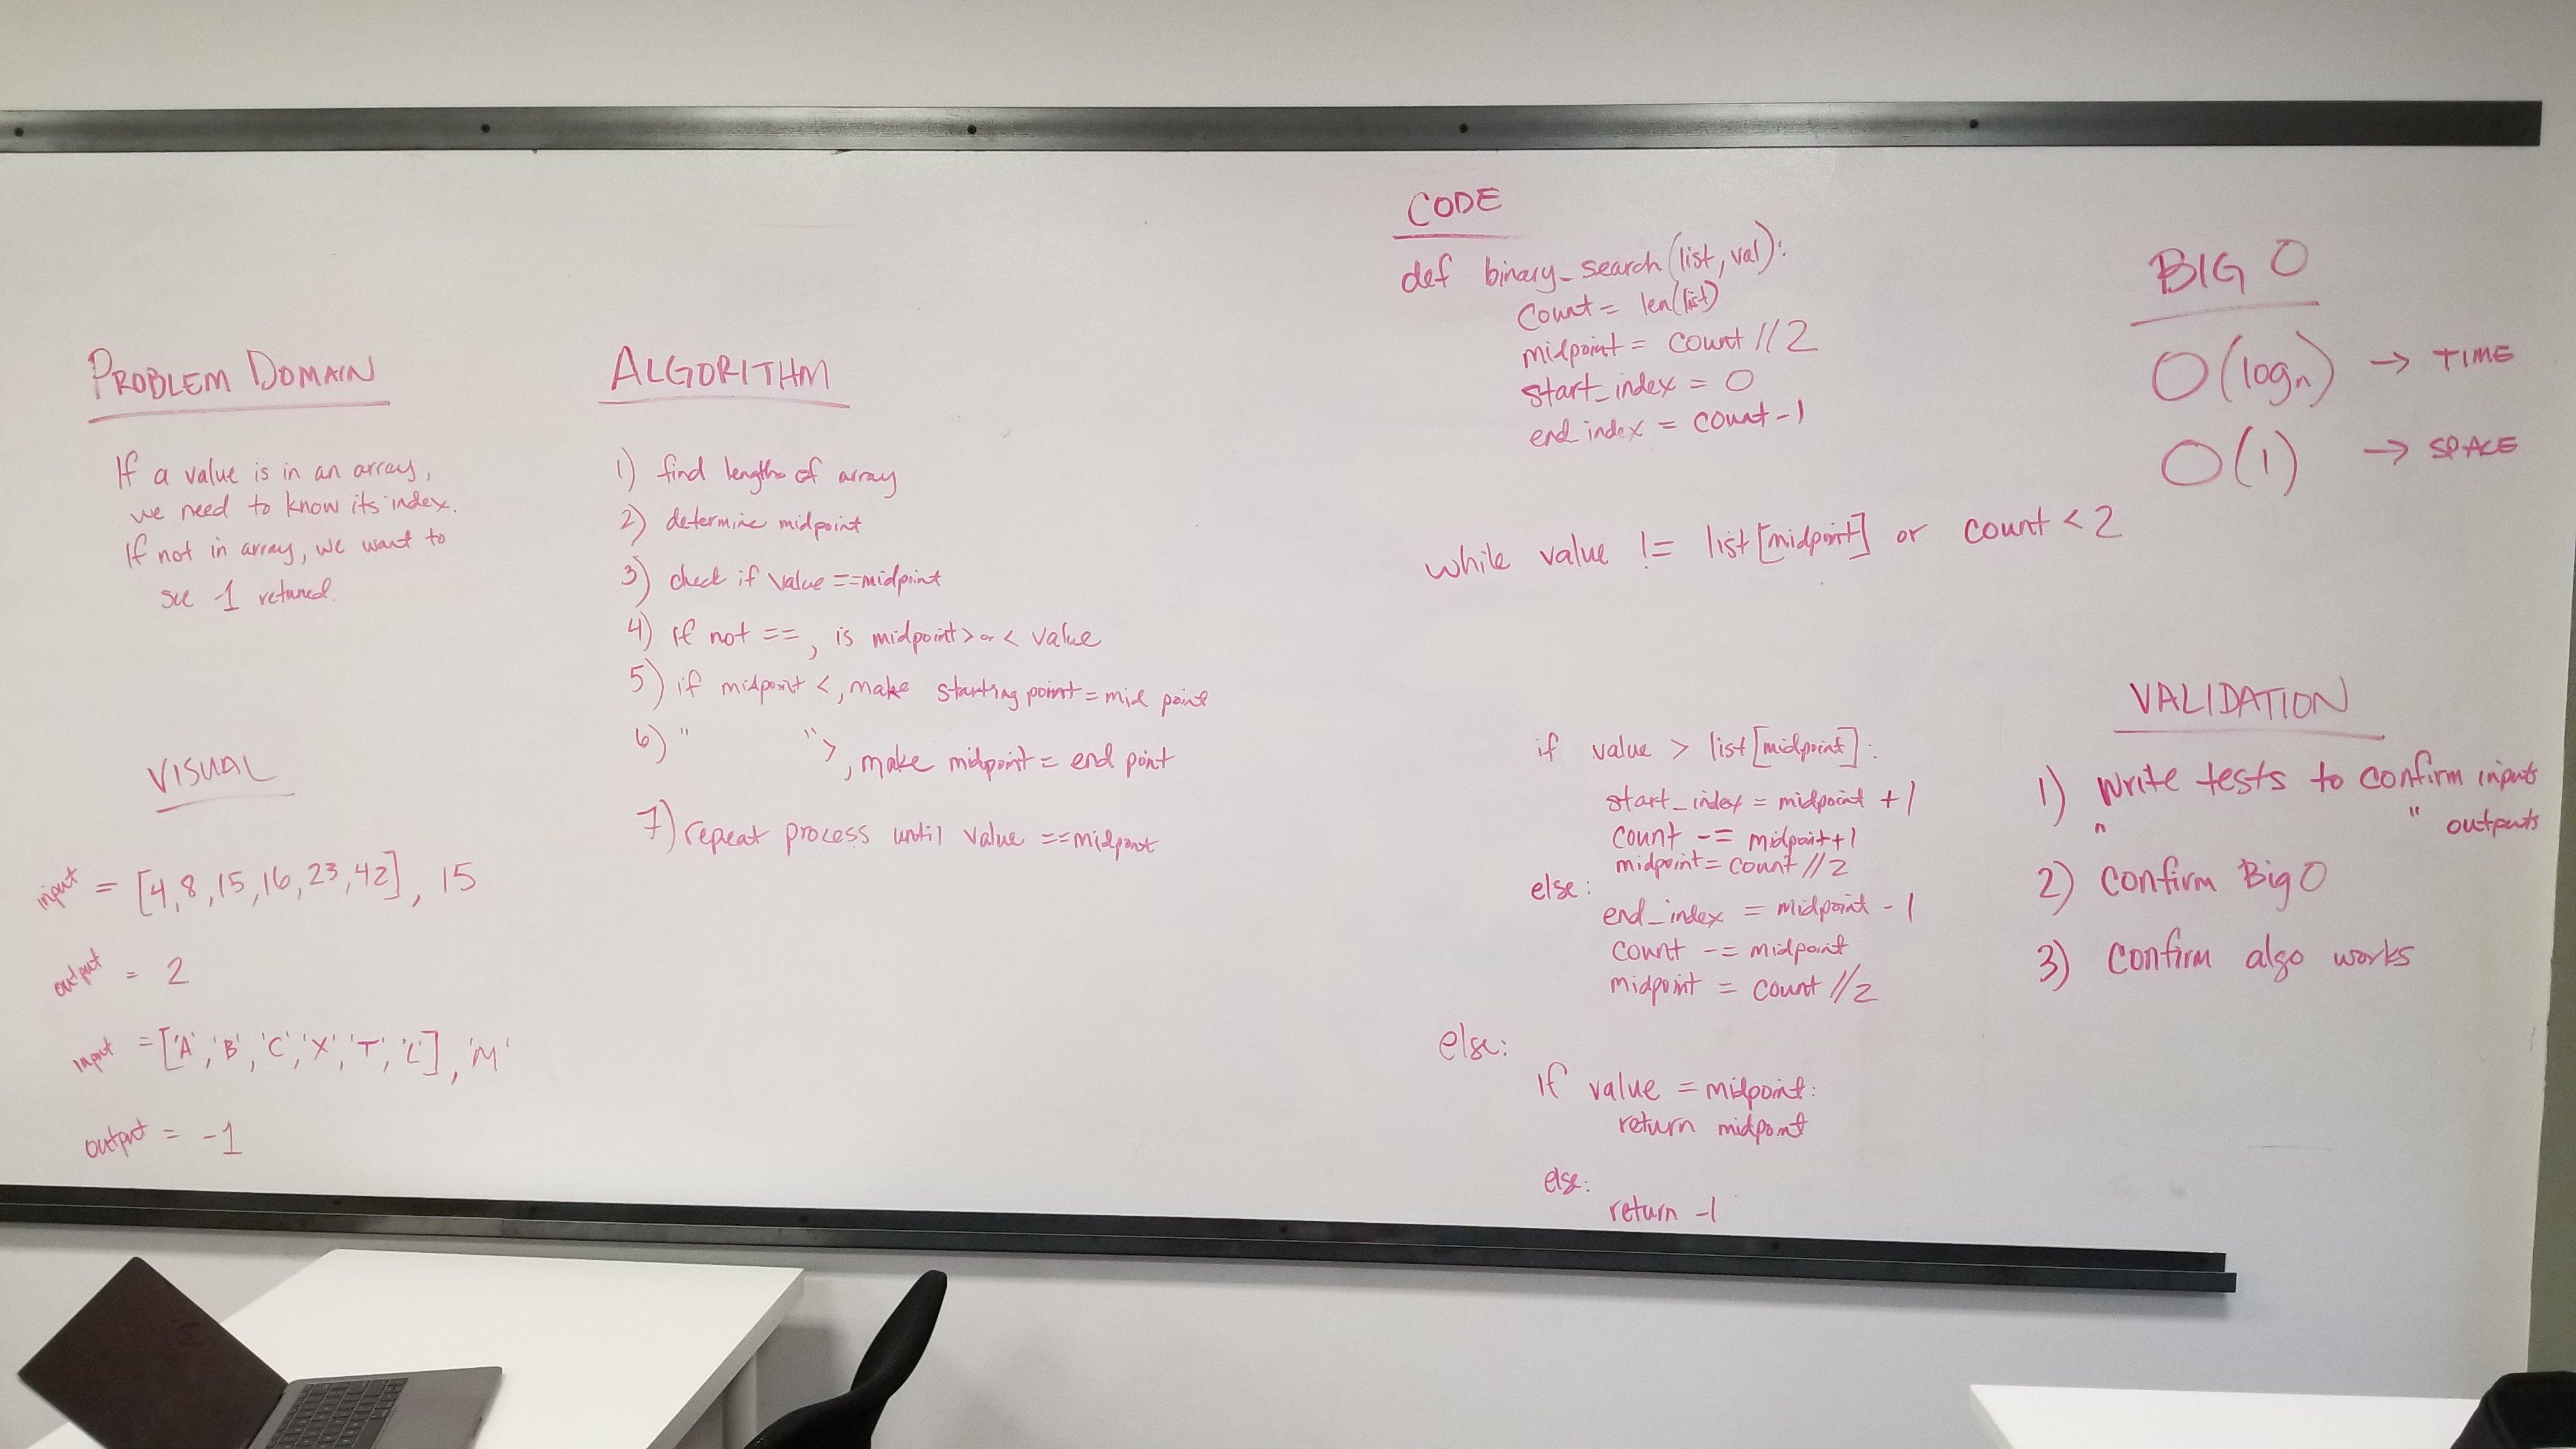 PROBLEM DOMAIN
If a value is in an array,
we need to know its index.
If not in array, we want to
see -1 returned.
VISUAL
input = [4,8,15,16,23,42], 15
output = 2
input = ['A','B','C','X','T','L'], 'M'
output = -1
ALGORITHM
1) find length of array
2) determine midpoint
3) check if value ==midpoint
4) if not ==, is midpoint > or < value
5) if midpoint <, make starting point = mid point
6) " " >, make midpoint = end point
7) repeat process until value ==midpoint
CODE
def binary_search(list, val):
count = len(list)
midpoint = count // 2
start_index = 0
end index = count - 1
while value != list[midpoint] or count < 2
if value > list[midpoint]:
start_index = midpoint + 1
count -= midpoint+1
midpoint = count // 2
else:
end_index = midpoint - 1
count -= midpoint
midpoint = count // 2
else:
if value = midpoint:
return midpoint
else:
return -1
BIG O
O(logn) → TIME
O(1) → SPACE
VALIDATION
1) Write tests to confirm inputs
" " outputs
2) Confirm Big O
3) Confirm algo works